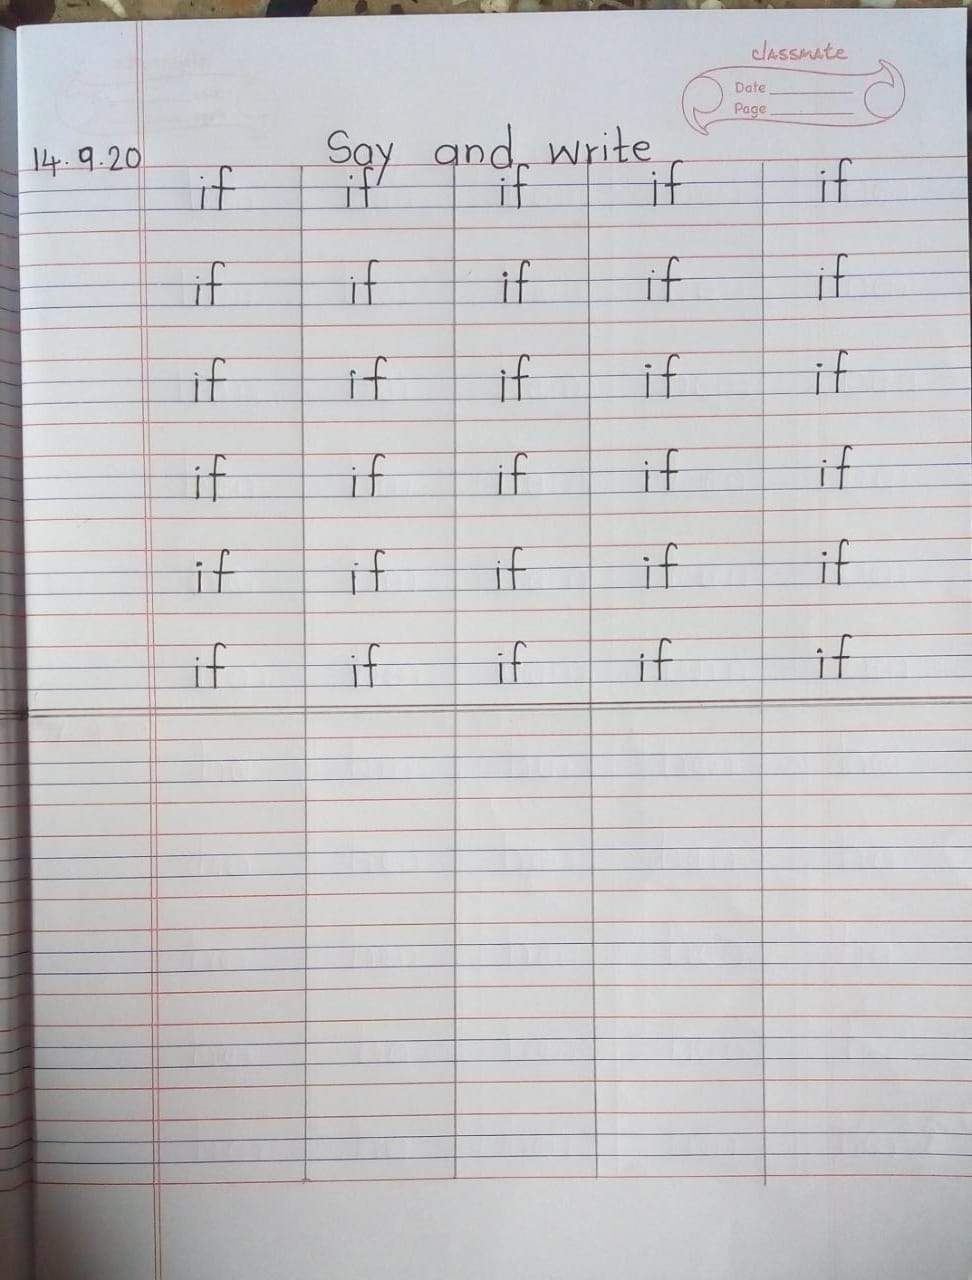 classmate
Date
Page
14.9.20 Say and write
if if if if if
if if if if if
if if if if if
if if if if if
if if if if if
if if if if if